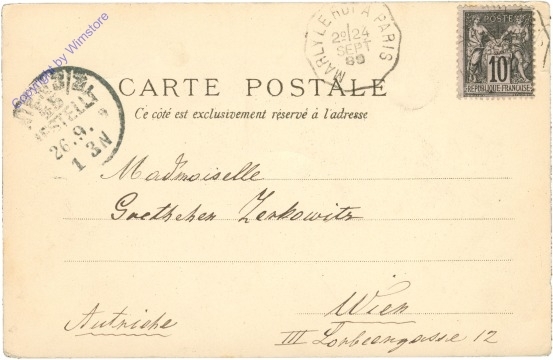 Copyright by Wimstore
MARLY LE ROI A PARIS
2E 24
SEPT
89
POSTES
10
REPUBLIQUE FRANÇAISE
CARTE POSTALE
Ce côté est exclusivement réservé à l'adresse
BESTELLT
26.9.
1 3N
Madmoiselle
Grethchen Zerkowitz
Wien
Autriche
III Lorbeergasse 12